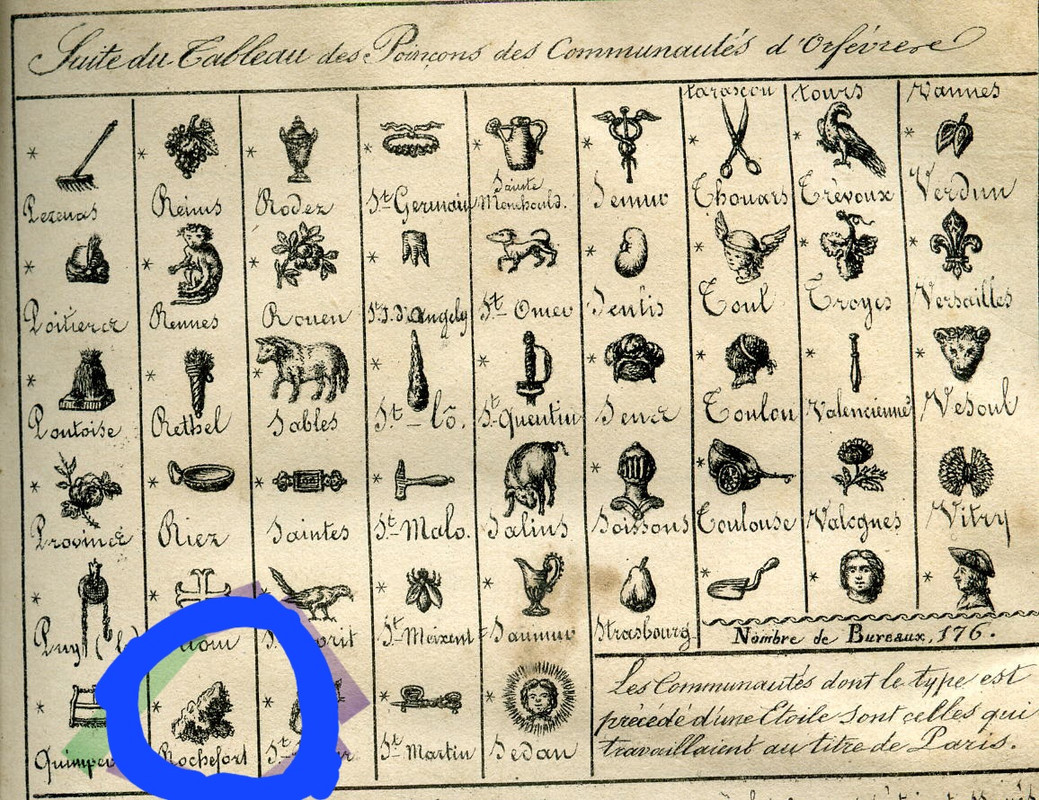 Suite du Tableau des Poinçons des Communautés d'Orfévrere
Tarascou Tours Vannes
Pezenas Reims Rodez St Germain Sainte Menehould. Semur Thouars Trévoux Verdun
Poitiers Rennes Rouen St J. d'Angely St Omer Senlis Toul Troyes Versailles
Pontoise Rethel Sables St Lô. St Quentin Sens Toulon Valenciennes Vesoul
Provins Riez Saintes St Malo. Salins Soissons Toulouse Valognes Vitry
Puy St Meixent Saumur Strasbourg
Nombre de Bureaux, 176.
Quimper Rochefort St St Martin Sedan
Les Communautés dont le type est
précédé d'une Etoile sont celles qui
travaillaient au titre de Paris.